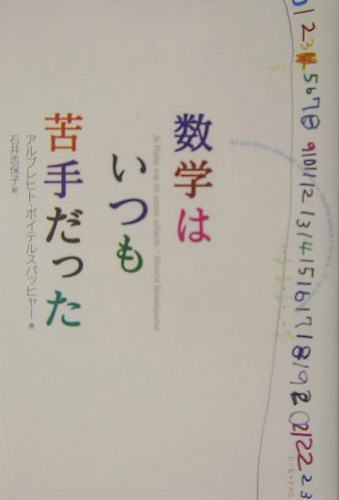 数学は
いつも
苦手だった
アルブレヒト・ボイテルスパッヒャー 著
石井志保子 訳
In Mathe war ich immer schlecht... Albrecht Beutelspacher
0 1 2 3 4 5 6 7 8 9 10 11 12 13 14 15 16 17 18 19 20 21 22 23